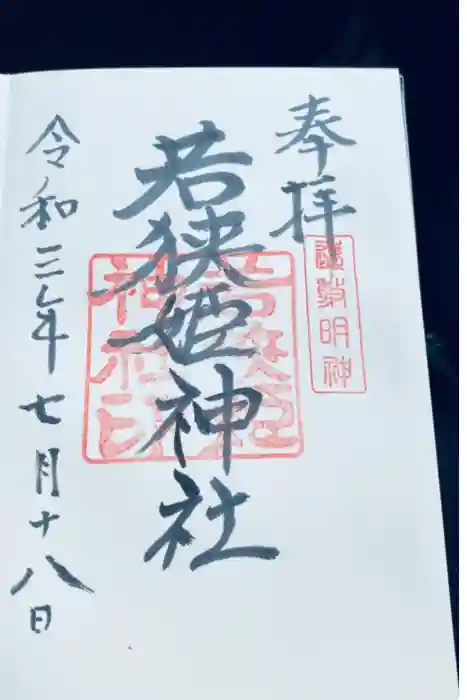 奉拝
遠敷明神
若狭姫神社
若狭姫
神社印
令和三年七月十八日